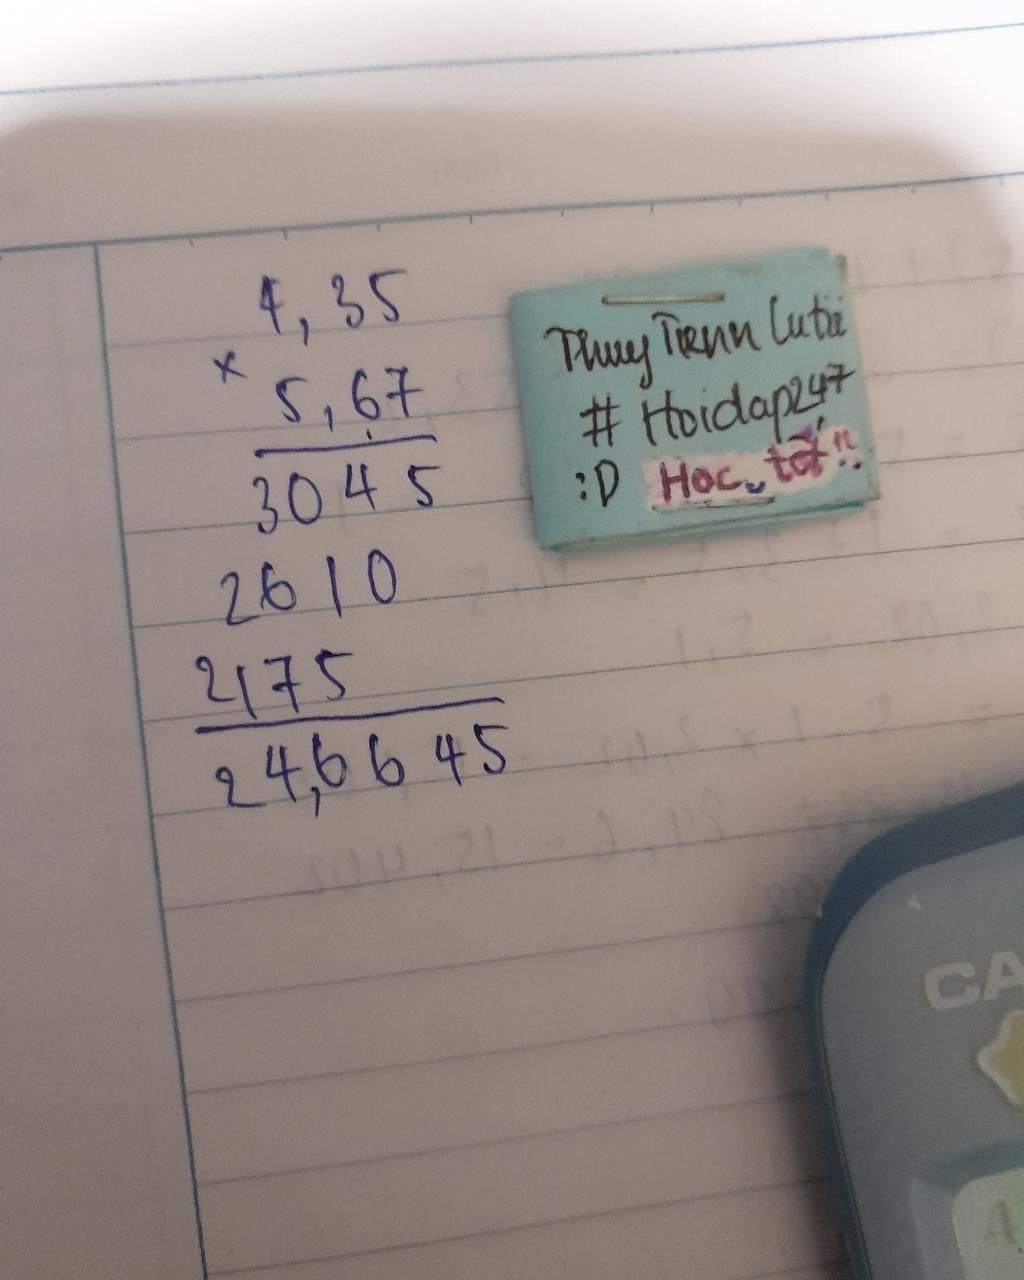 4,35
×
5,67
3045
2610
2175
24,6645
Thuy Tienn Cutii
# Hoidap247
:D Học tốt!!
CA
4